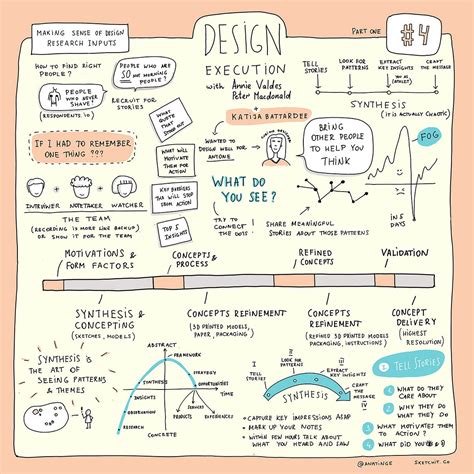 MAKING SENSE OF DESIGN
RESEARCH INPUTS
DESIGN
EXECUTION
with Annie Valdes
Peter Macdonald
+
KATIJA BATTARDEE
PART ONE
#4
HOW TO FIND RIGHT
PEOPLE?
PEOPLE
WHO NEVER
SHAVE?
(RESPONDENTS.IO)
PEOPLE WHO ARE
SO NOT MORNING
PEOPLE?
RECRUIT FOR
STORIES
TELL
STORIES
LOOK FOR
PATTERNS
EXTRACT
KEY INSIGHTS
CRAFT
THE MESSAGE
SYNTHESIS
(IT IS ACTUALLY CHAOTIC)
FOG
IN 5
DAYS
IF I HAD TO REMEMBER
ONE THING ???
INTERVIWER
NOTETAKER
WATCHER
THE TEAM
(RECORDING IS MORE LIKE BACKUP)
OR SHOW IT FOR THE TEAM
WHAT
QUOTE THAT
STOOD OUT
WHAT WILL
MOTIVATE
THEM FOR
ACTION
KEY BARRIERS
THAT WILL STOP
FROM ACTION
TOP 5
INSIGHTS
WANTED TO
DESIGN WELL FOR
ANYONE
BRING
OTHER PEOPLE
TO HELP YOU
THINK
WHAT DO
YOU SEE?
TRY TO
CONNECT
THE DOTS
SHARE MEANINGFUL
STORIES ABOUT THOSE PATTERNS
MOTIVATIONS &
FORM FACTORS
CONCEPTS &
PROCESS
REFINED
CONCEPTS
VALIDATION
SYNTHESIS &
CONCEPTING
(SKETCHES, MODELS)
CONCEPTS REFINEMENT
(3D PRINTED MODELS,
PAPER, PACKAGING)
CONCEPTS REFINEMENT
(REFINED 3D PRINTED MODELS
PACKAGING, INSTRUCTIONS)
CONCEPT
DELIVERY
(HIGHEST
RESOLUTION)
SYNTHESIS IS
THE ART OF
SEEING PATTERNS
& THEMES
ABSTRACT
FRAMEWORK
SYNTHESIS
STRATEGY
INSIGHTS
OPPORTUNITIES
TIME
OBSERVATIONS
PRODUCTS
SERVICES
EXPERIENCES
RESEARCH
CONCRETE
TELL
STORIES
LOOK FOR
PATTERNS
EXTRACT
KEY
INSIGHTS
CRAFT
THE
MESSAGE
SYNTHESIS
• CAPTURE KEY IMPRESSIONS ASAP
• MARK UP YOUR NOTES
• WITHIN FEW HOURS TALK ABOUT
WHAT YOU HEARD AND SAW
1 TELL STORIES
1 WHAT DO THEY
CARE ABOUT
2 WHY THEY DO
WHAT THEY DO
3 WHAT MOTIVATES THEM
TO ACTION?
4 WHAT DID YOU
@ANATINGE
SKETCHIT.CO